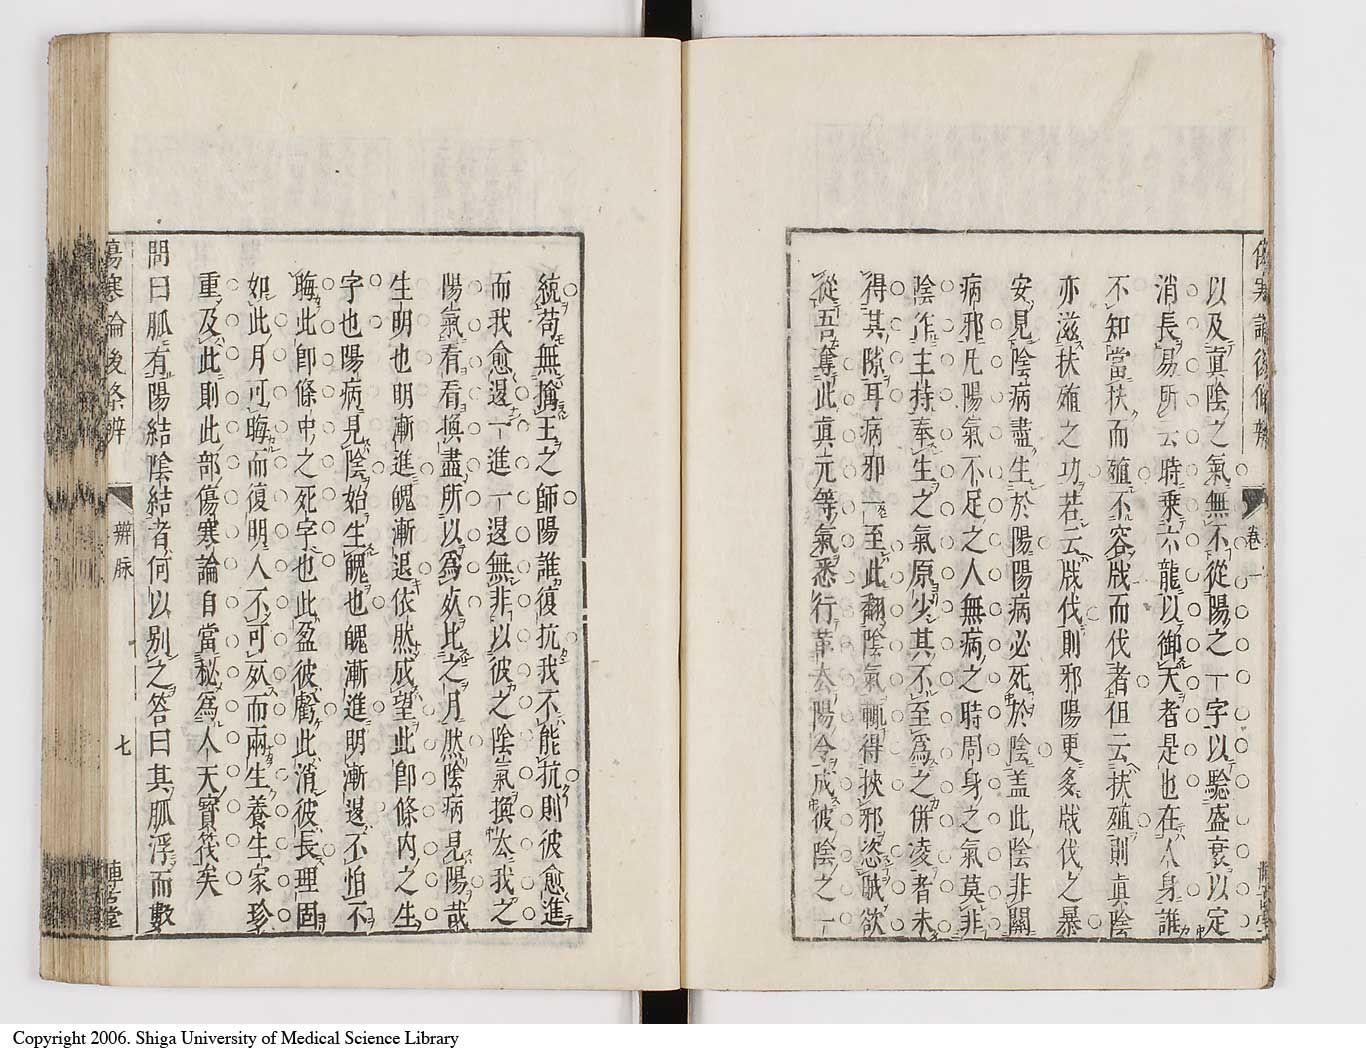 以及真陰之氣無不從陽之一字以驗盛衰以定
消長易所云時乘六龍以御天者是也在人身誰
不知當扶而殖不容戕而伐者但云扶殖則眞陰
亦滋扶殖之功若云戕伐則邪陽更多戕伐之暴
安見陰病盡生於陽陽病必死於陰盖此陰非關
病邪凡陽氣不足之人無病之時周身之氣莫非
陰作主持奉生之氣原少其不至爲之併凌者未
得其隙耳病邪一至此翻陰氣輒得挾邪恣賊欲
從吾奪此眞元等氣悉行革去陽令成彼陰之一
卷一
統苟無擒王之師陽誰復抗我不能抗則彼愈進
而我愈退一進一退無非以彼之陰氣換去我之
陽氣看看換盡所以爲死此之月然陰病見陽哉
生明也明漸進魄漸退依然成望此卽條內之生
字也陽病見陰始生魄也魄漸進明漸退不怕不
晦此卽條中之死字也此盈彼虧此消彼長理固
如此月可晦而復明人不可死而兩生養生家珍
重及此則此部傷寒論自當秘爲人天寶筏矣
問曰脈有陽結陰結者何以别之答曰其脈浮而數
傷寒論後條辨
辨脈
七
Copyright 2006. Shiga University of Medical Science Library